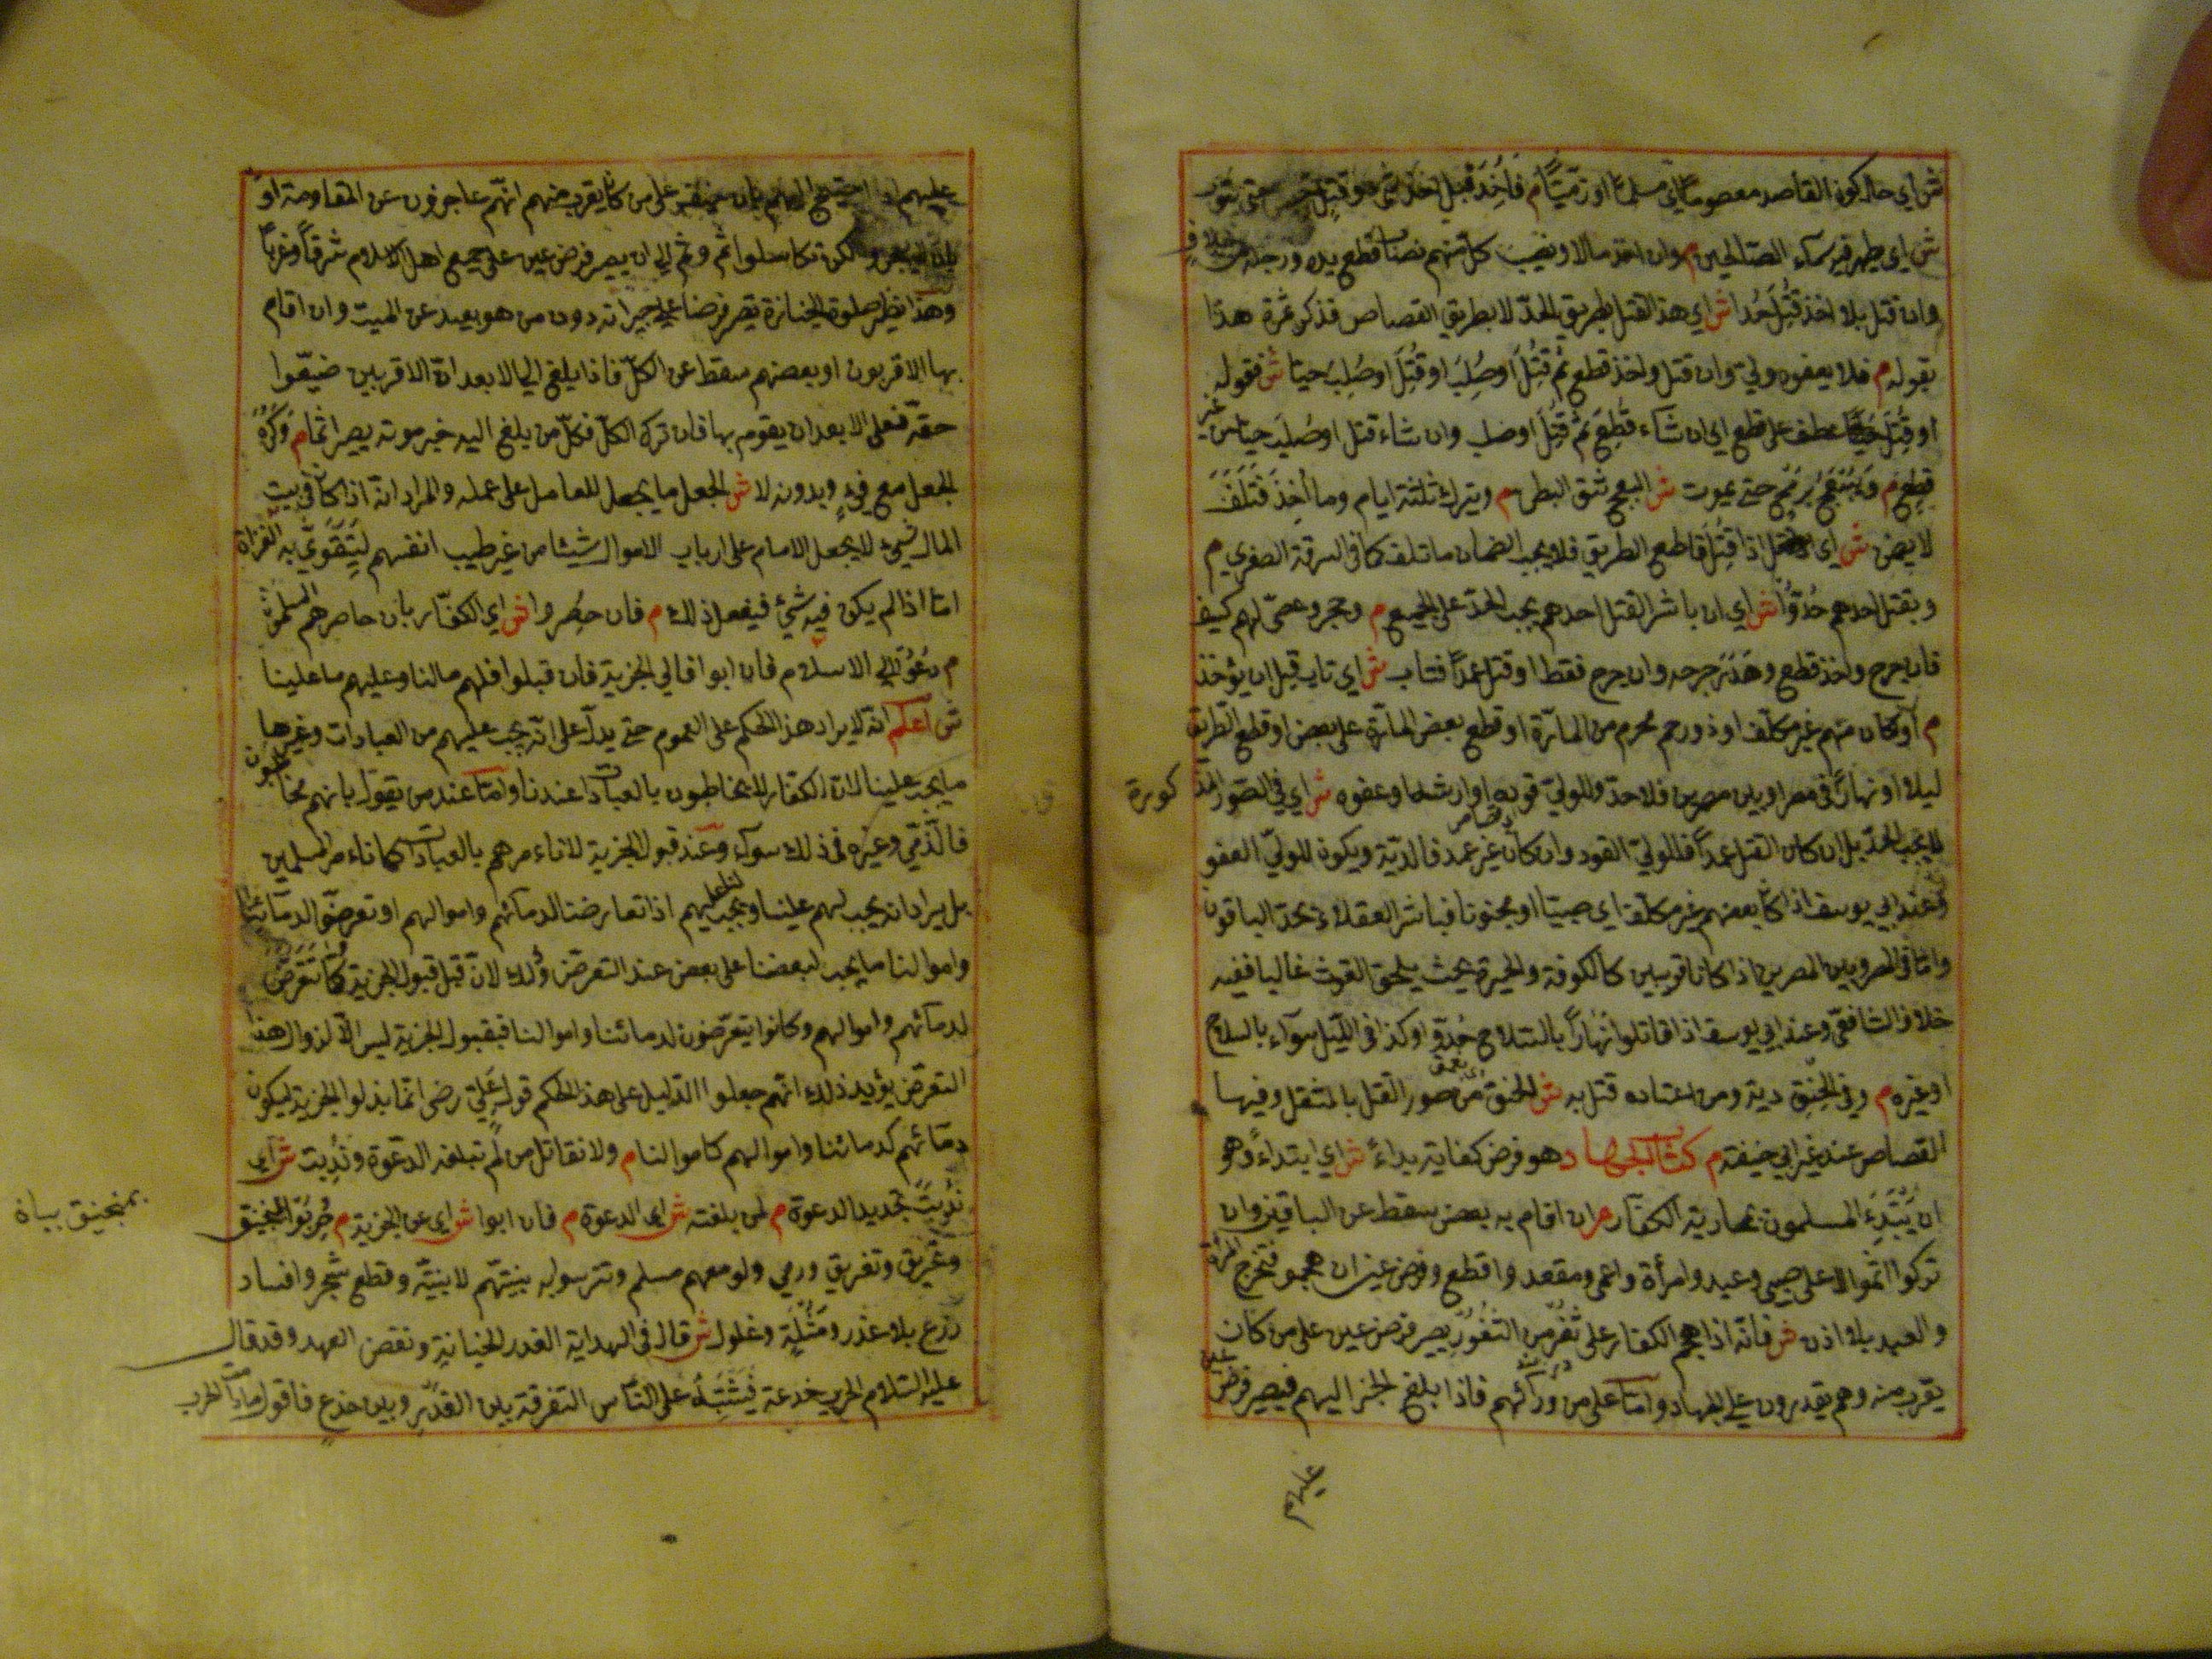 ش اي حال كون القاصد معصوما اي مسلما او ذميا م فاخذ قبل اخذ شئ وقتل حبس حتى يتوب
ش اي يظهر فيه سيماء الصالحين م وان اخذ مالا ونصيب كل منهم نصاب قطع يده ورجله من خلاف
وان قتل بلا اخذ قتل حدا ش اي هذا القتل بطريق الحد لا بطريق القصاص فذكر ثمرة هذا
بقوله م فلا يعفوه ولي وان قتل واخذ قطع ثم قتل او صلب او قتل او صلب حيا ش فقوله
او قتل عطف على قطع اي ان شاء قطع ثم قتل او صلب وان شاء قتل او صلب حيا من غير
قطع م ويبعج برمح حتى يموت ش البعج شق البطن م ويترك ثلثة ايام وما اخذ فتلف
لا يضمن ش اي اذا قتل قاطع الطريق فلا يجب الضمان ما تلف كما في السرقة الصغرى م
وبقتل احدهم حدوا ش اي ان باشر القتل احدهم يجب الحد على الجميع م وحجر وعصى لهم كسيف
فان جرح واخذ قطع وهدر جرحه وان جرح فقط او قتل عمدا فتاب ش اي تاب قبل ان يؤخذ
م او كان منهم غير مكلف او ذو رحم محرم من المارة او قطع بعض المارة على بعض او قطع الطريق
ليلا او نهارا في مصر او بين مصرين فلا حد وللولي قوده او ارشه او عفوه ش اي في الصور المذ
كورة
لا يجب الحد بل ان كان القتل عمدا فللولي القود وان كان غير عمد فالدية ويكون للولي العفو
وعند ابي يوسف اذا كان بعضهم غير مكلف اي صبيا او مجنونا فباشر العقلاء يحد الباقون
واما في المصر وبين المصرين اذا كانا قريبين كالكوفة والحيرة بحيث يلحق الغوث غالبا ففيه
خلاف الشافعي وعند ابي يوسف اذا قاتلوا نهارا بالسلاح حدوا وكذا في الليل سواء بالسلاح
او غيره م وفي الخنق دية ومن اعتاده قتل به ش الخنق من صور القتل بالمثقل وفيها
القصاص عند غير ابي حنيفة م كتاب الجهاد هو فرض كفاية بداء ش اي ابتداء وهو
ان يبتدئ المسلمون بمحاربة الكفار م ان اقام به بعض سقط عن الباقين وان
تركوا اثموا لا على صبي وعبد وامرأة واعمى ومقعد واقطع وفرض عين ان هجموا فتخرج المرأة
والعبد بلا اذن ش فانه اذا هجم الكفار على ثغر من الثغور يصير فرض عين على من كان
يقرب منه وهم يقدرون على الجهاد واما على من ورائهم فاذا بلغ الخبر اليهم فيصير فرض عين
عليهم
عليهم اذا احتيج اليهم بان على من كان يقرب منهم انهم عاجزون عن المقاومة او
ولكن تكاسلوا ثم وثم الى ان يصير فرض عين على جميع اهل الاسلام شرقا وغربا
وهذا نظير صلوة الجنازة تصير فرضا على جيرانه دون من هو بعيد عن الميت وان اقام
بها الاقربون او بعضهم سقط عن الكل فاذا بلغ الى الابعد ان الاقربين ضيعوا
حقه فعلى الابعد ان يقوم بها فان ترك الكل فكل من بلغ اليه خبر موته يصير اثما م وكره
الجعل مع فيء وبدونه لا ش الجعل ما يجعل للعامل على عمله والمراد انه اذا كان في بيت
المال شيء لا يجعل الامام على ارباب الاموال شيئا من غير طيب انفسهم ليتقوى به الغزاة
اما اذا لم يكن فيه شئ فيفعل ذلك م فان حصروا ش اي الكفار بان حاصرهم المسلمون
م دعوا الى الاسلام فان ابوا فالى الجزية فان قبلوا فلهم ما لنا وعليهم ما علينا
ش اعلم انه لا يراد هذا الحكم على العموم حتى يدل على انه يجب عليهم من العبادات وغيرها
ما يجب علينا لان الكفار لا يخاطبون بالعبادات عندنا واما عند من يقول بانهم مخاطبون
فالذمي وغيره في ذلك سواء وعند قبول الجزية لا نأمرهم بالعبادات كما نأمر المسلمين
بل يراد انه يجب لهم علينا ويجب لنا عليهم اذا تعارضنا لدمائهم واموالهم او تعرضوا لدمائنا
واموالنا ما يجب لبعضنا على بعض عند التعرض وذلك لان قبل قبول الجزية كنا نتعرض
لدمائهم واموالهم وكانوا يتعرضون لدمائنا واموالنا فبقبول الجزية ليس الا لزوال هذا
التعرض يؤيد ذلك انهم جعلوا الدليل على هذا الحكم قول علي رضى انما بذلوا الجزية ليكون
دمائهم كدمائنا واموالهم كاموالنا م ولا نقاتل من لم تبلغه الدعوة وندبت ش اي
ندبت تجديد الدعوة م لمن بلغته ش اي الدعوة م فان ابوا ش اي عن الجزية م حوربوا بمنجنيق
بمنجنيق بياة
وتحريق وتغريق ورمي ولو معهم مسلم وتترسوا به بنيتهم لا بنيته وقطع شجر وافساد
زرع بلا غدر ومثلة وغلول ش قال في الهداية الغدر الخيانة ونقض العهد وقد قال
عليه السلام الحرب خدعة فيشتبه على الناس التفرقة بين الغدر وبين خدع فاقول ما دام الحرب